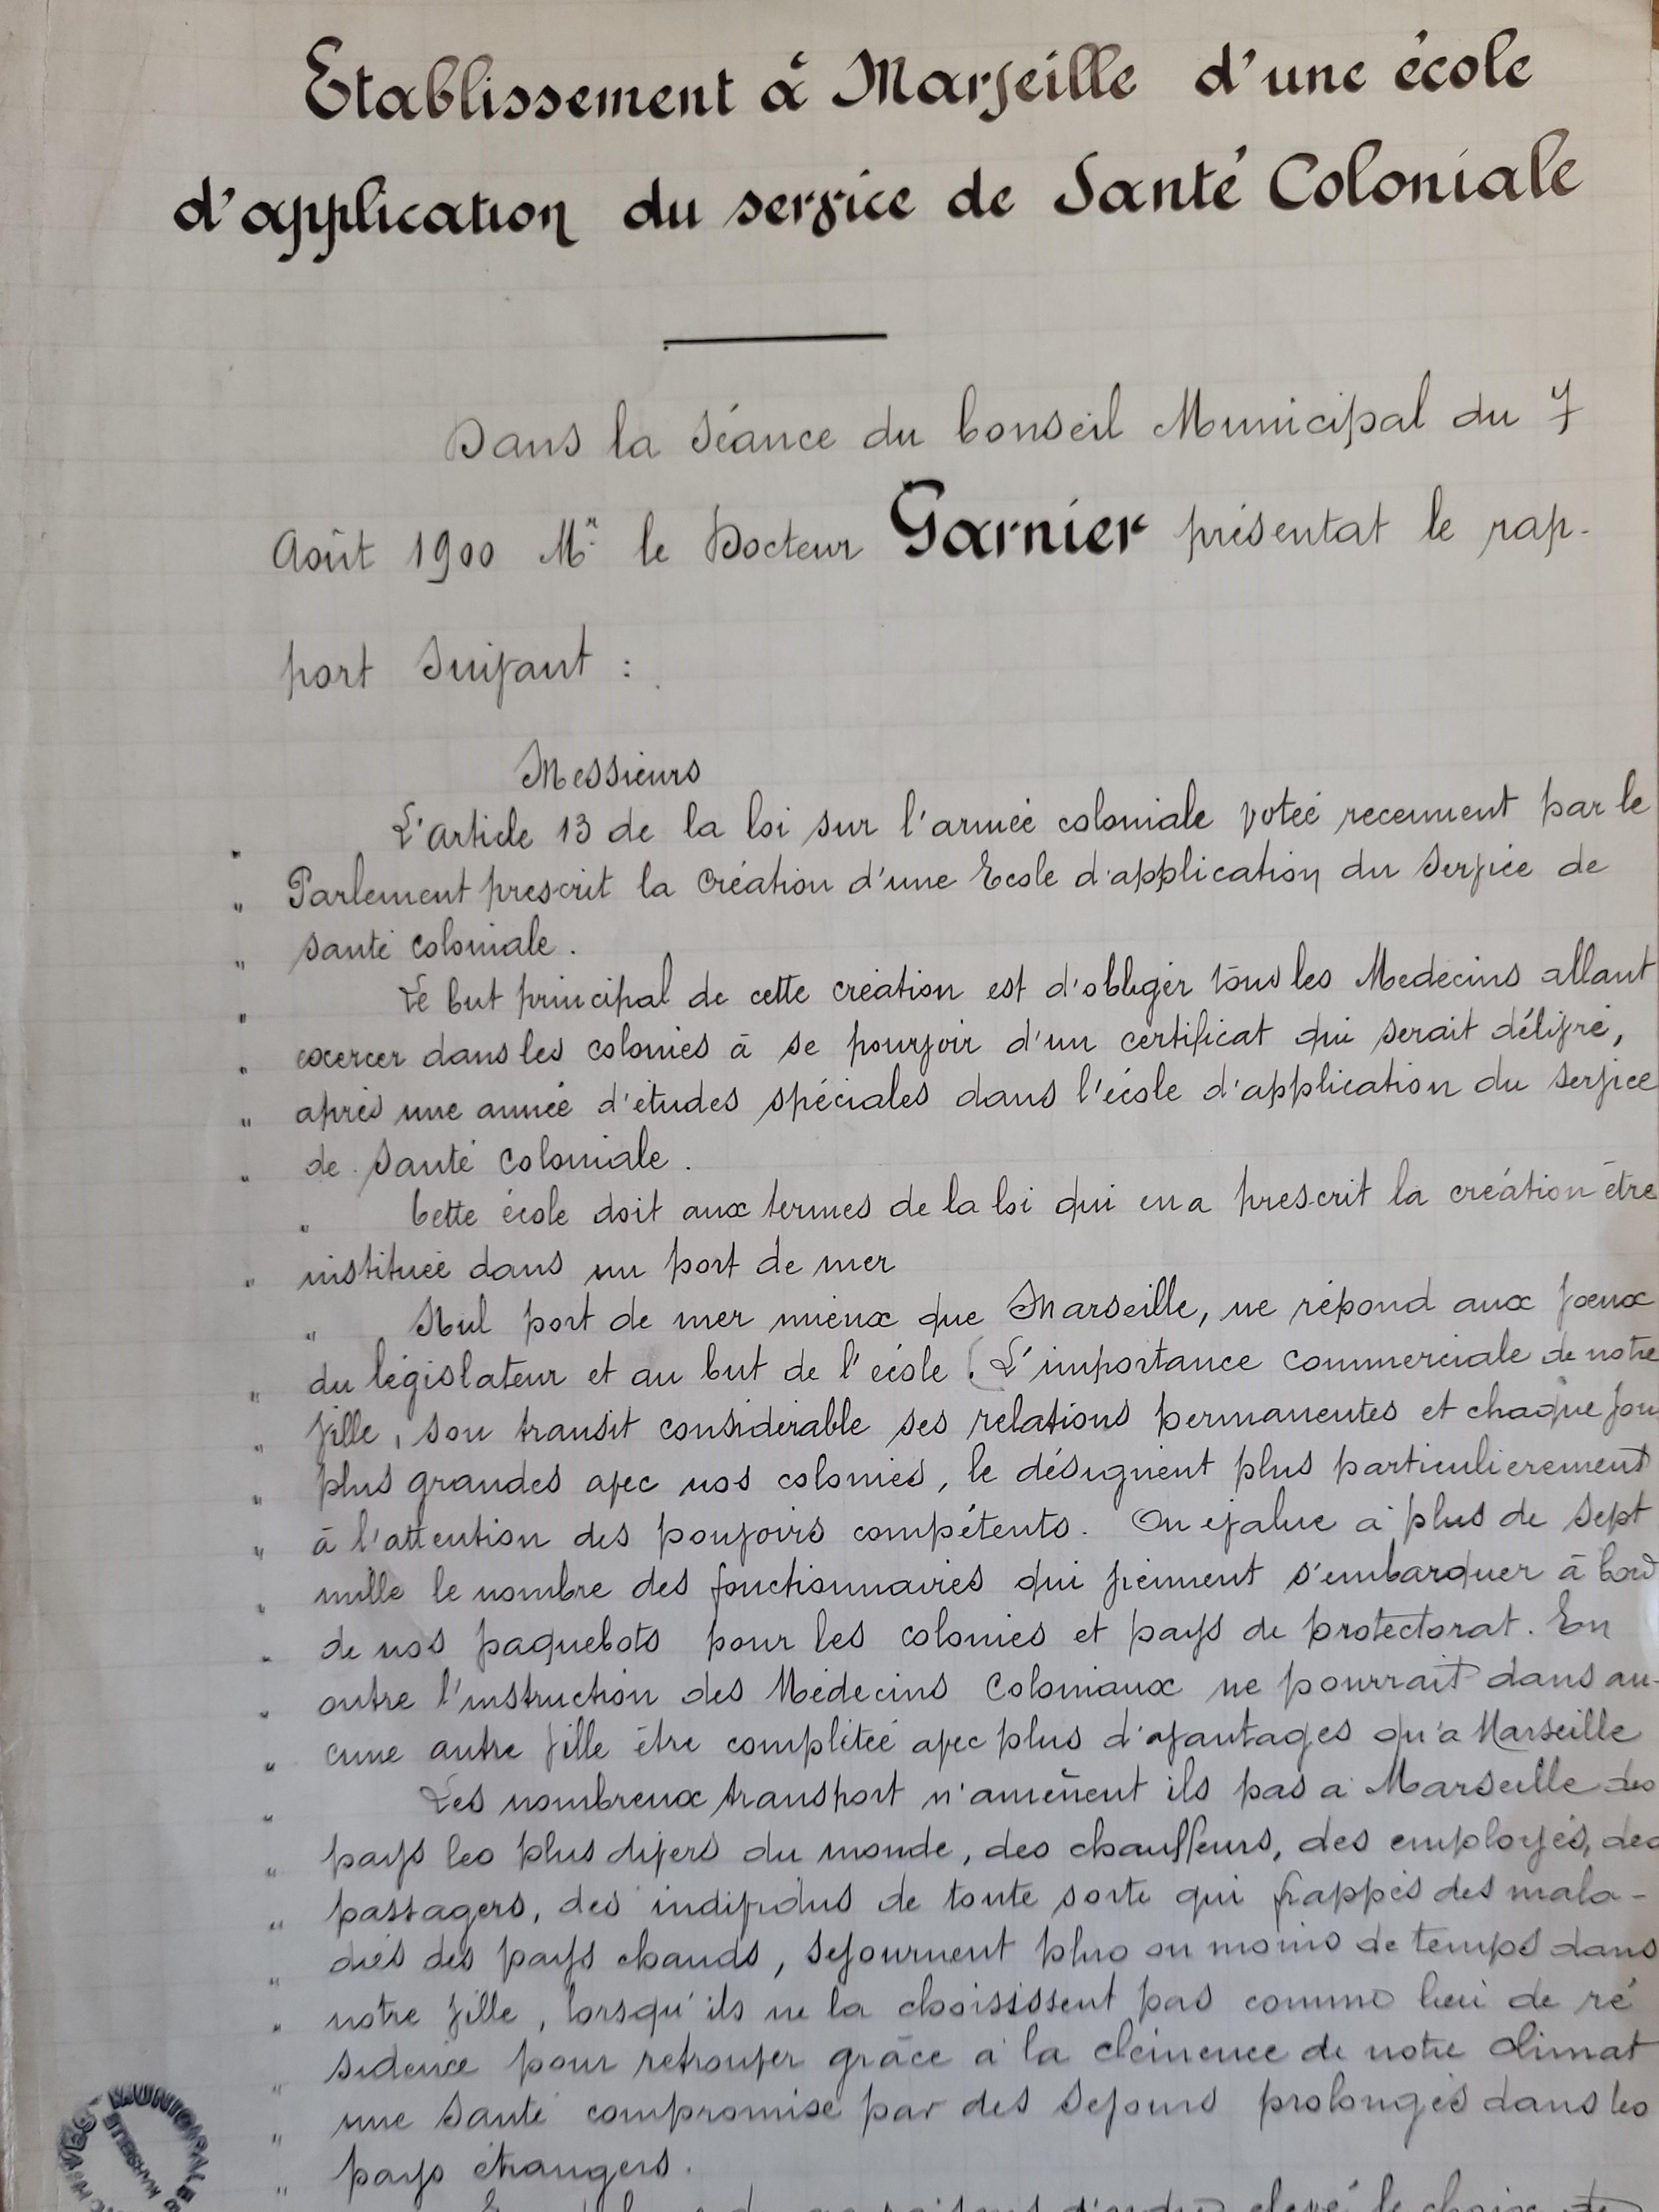 Etablissement à Marseille d'une école
d'application du service de Santé Coloniale
Dans la séance du Conseil Municipal du 7
Août 1900 Mr le Docteur Garnier présentat le rap-
port suivant :
Messieurs
L'Article 13 de la loi sur l'armée coloniale votée recemment par le
" Parlement prescrit la Création d'une Ecole d'application du Service de
" santé coloniale.
" Le but principal de cette création est d'obliger tous les Medecins allant
" exercer dans les colonies à se pourvoir d'un certificat qui serait délivré,
" après une année d'études spéciales dans l'école d'application du service
" de Santé Coloniale.
" Cette école doit aux termes de la loi qui en a prescrit la création être
" instituée dans un port de mer
" Nul port de mer mieux que Marseille, ne répond aux vœux
" du législateur et au but de l'école. (L'importance commerciale de notre
" ville, son transit considérable ses relations permanentes et chaque jour
" plus grandes avec nos colonies, le désignent plus particulierement
" à l'attention des pouvoirs compétents. On évalue à plus de sept
" mille le nombre des fonctionnaires qui viennent s'embarquer à bord
" de nos paquebots pour les colonies et pays de protectorat. En
" outre l'instruction des Médecins Coloniaux ne pourrait dans au-
" cune autre ville être complétée avec plus d'avantages qu'à Marseille
" Les nombreux transport n'amènent ils pas à Marseille des
" pays les plus divers du monde, des chauffeurs, des employés, des
" passagers, des individus de toute sorte qui frappés des mala-
" dies des pays chauds, séjournent plus ou moins de temps dans
" notre ville, lorsqu'ils ne la choisissent pas comme lieu de ré
" sidence pour retrouver grâce à la clémence de notre climat
" une santé compromise par des sejours prolongés dans les
" pays étrangers.
ARCHIVES MUNICIPALES
MARSEILLE